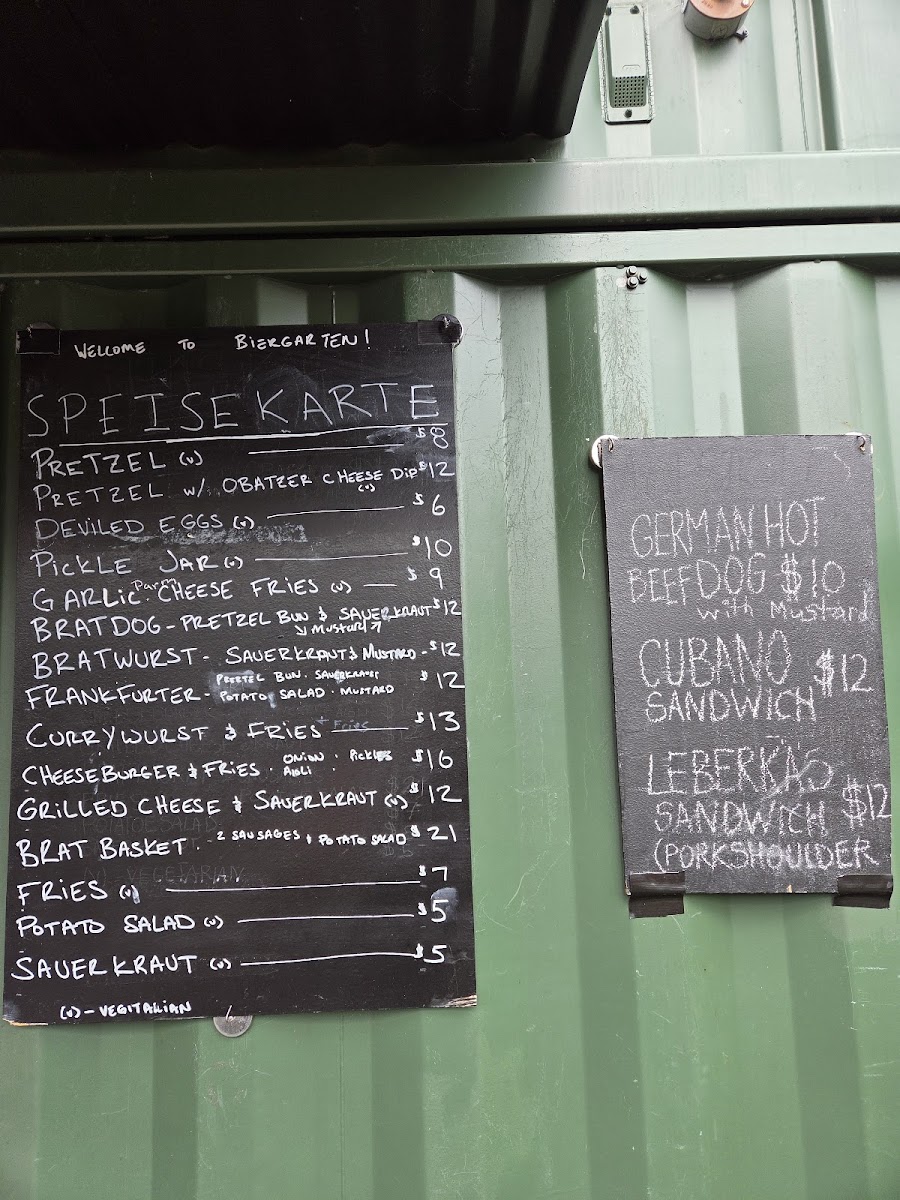 WELCOME TO BIERGARTEN!
SPEISEKARTE
PRETZEL (v) $8
PRETZEL w/ OBATZER CHEESE DIP (v) $12
DEVILED EGGS (v) $6
PICKLE JAR (v) $10
GARLIC Parm CHEESE FRIES (v) $9
BRATDOG - PRETZEL BUN & SAUERKRAUT $12
Mustard
BRATWURST - SAUERKRAUT & MUSTARD - $12
FRANKFURTER - PRETZEL BUN · SAUERKRAUT $12
POTATO SALAD · MUSTARD
CURRYWURST & FRIES + Fries $13
CHEESEBURGER & FRIES · ONION · PICKLES $16
AIOLI
GRILLED CHEESE & SAUERKRAUT (v) $12
BRAT BASKET · 2 SAUSAGES + POTATO SALAD $21
VEGETARIAN
FRIES (v) $7
POTATO SALAD (v) $5
SAUERKRAUT (v) $5
(v) - VEGITALIAN
GERMAN HOT
BEEF DOG $10
with Mustard
CUBANO $12
SANDWICH
LEBERKÄS
SANDWICH $12
(PORKSHOULDER